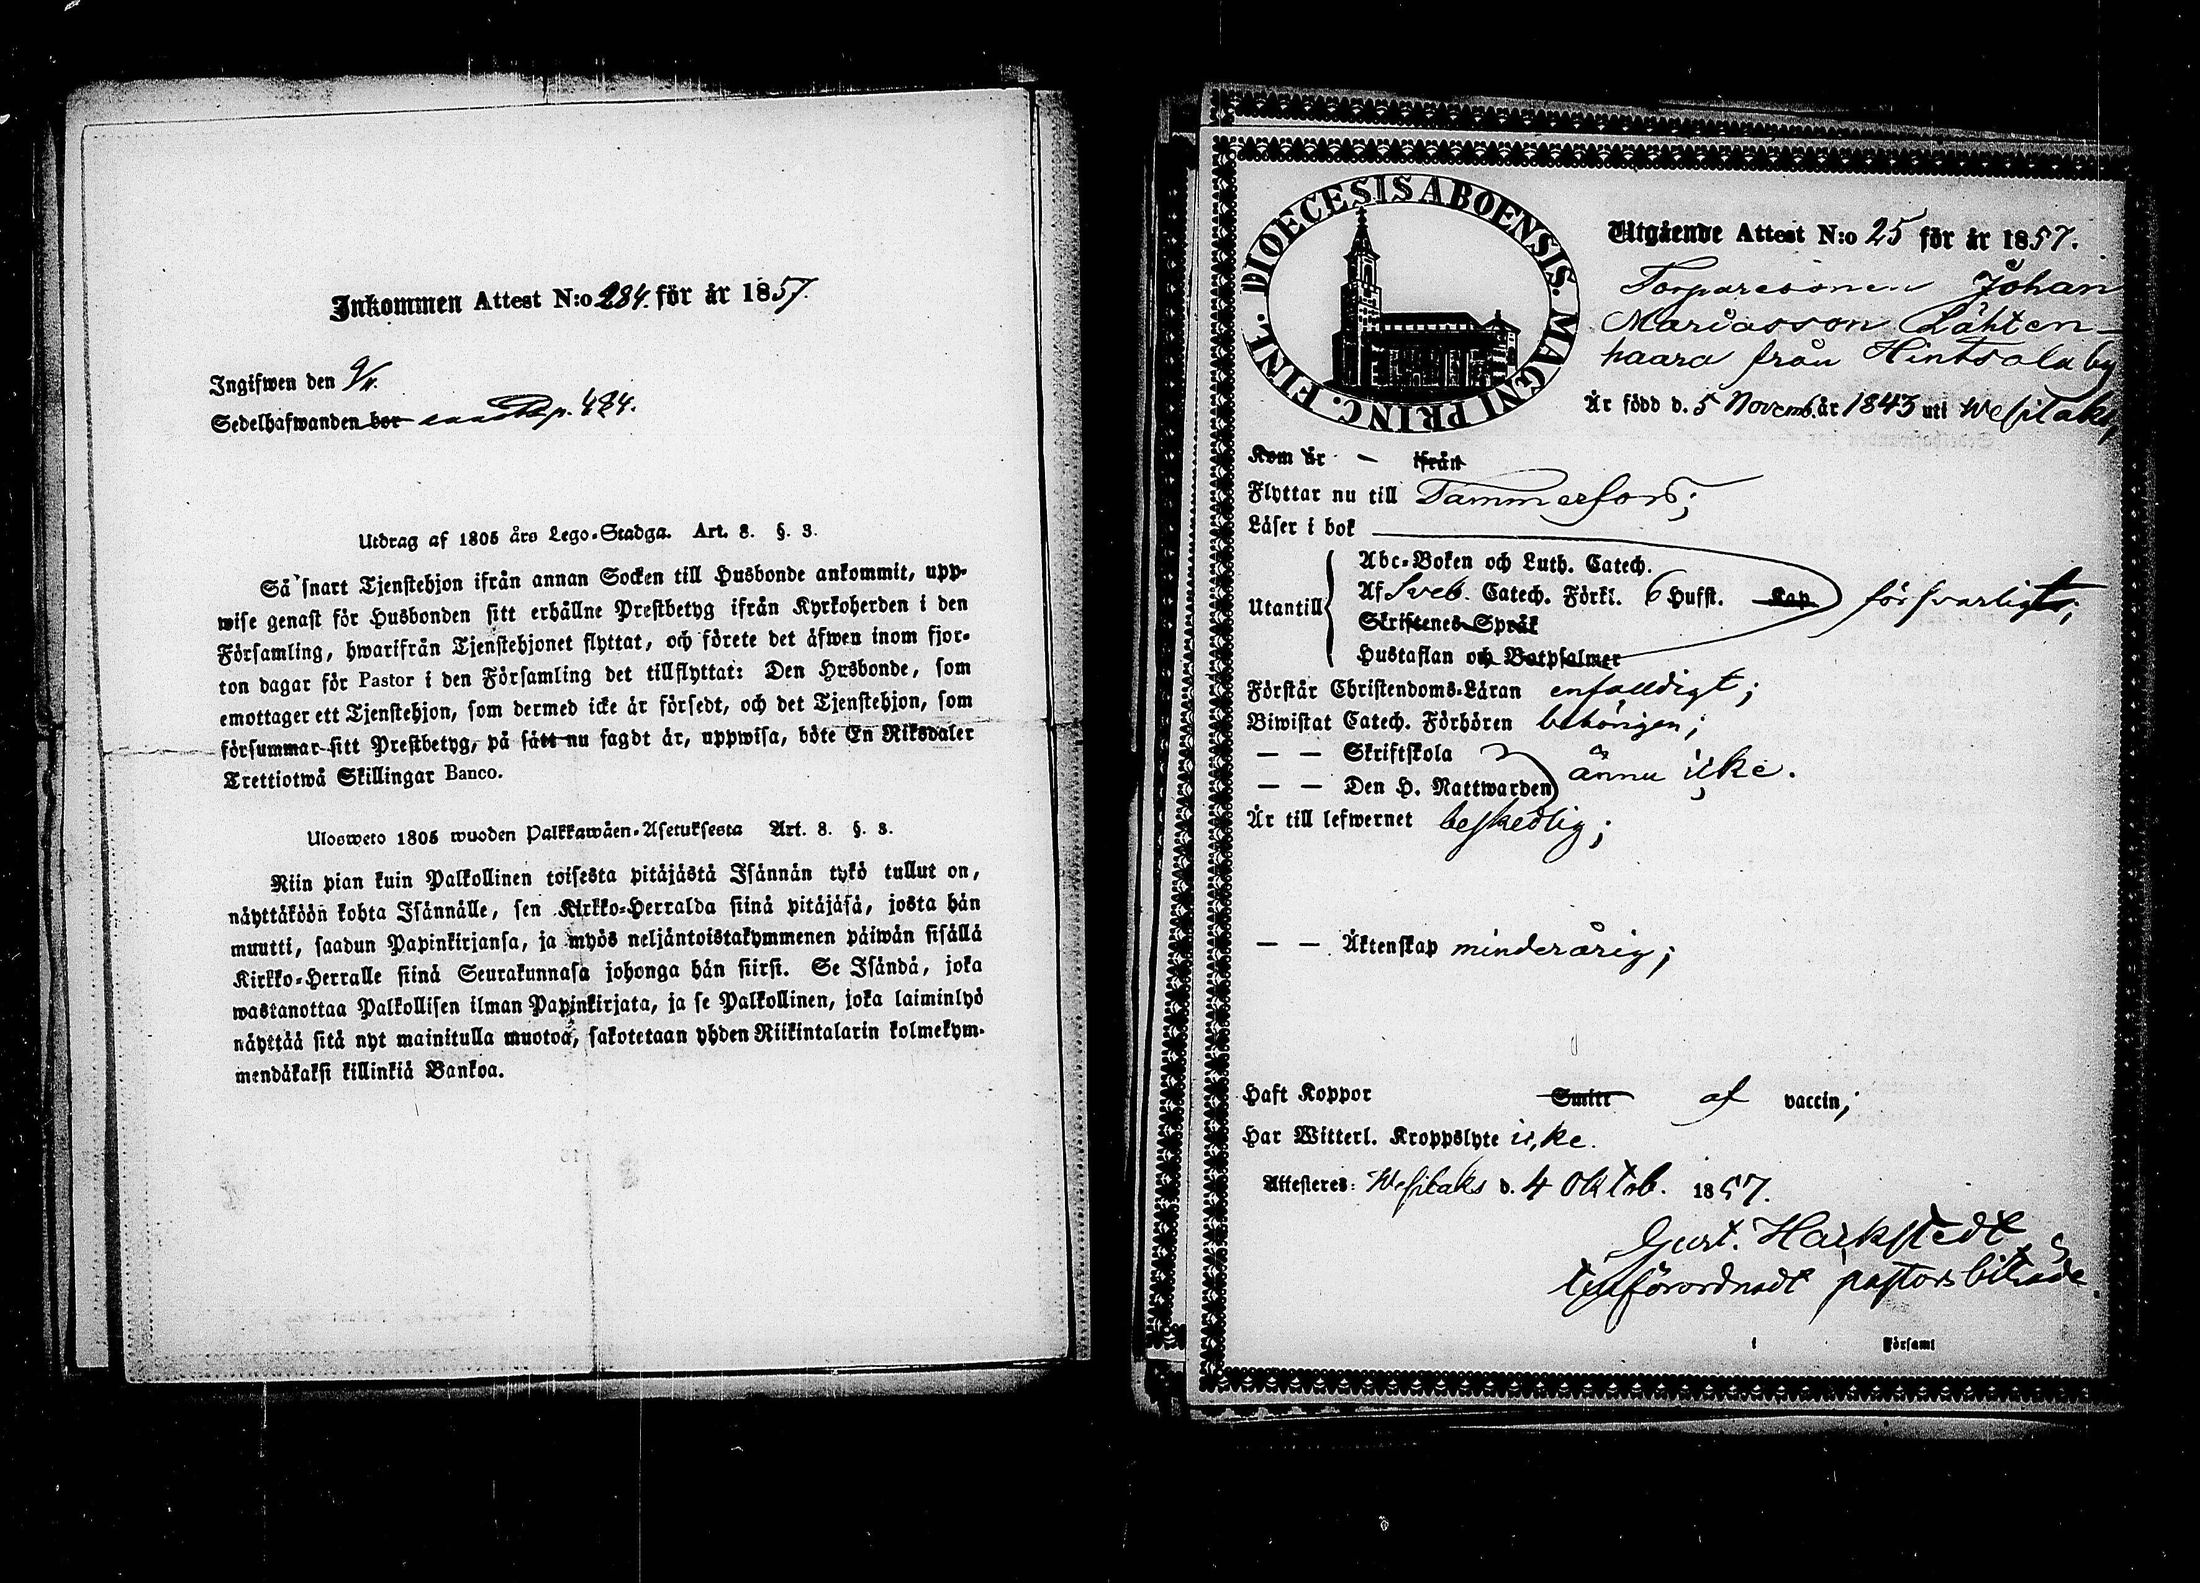 Inkommen Attest N:o 284. för år 1857.
Ingifwen den 9/11.
Sedelhafwanden bor pag. 484.
Utdrag af 1805 års Lego-Stadga. Art. 8. §. 3.
Så snart Tjenstehjon ifrån annan Socken till Husbonde ankommit, upp-
wise genast för Husbonden sitt erhållne Prestbetyg ifrån Kyrkoherden i den
Församling, hwarifrån Tjenstehjonet flyttat, och förete det äfwen inom fjor-
ton dagar för Pastor i den Församling det tillflyttat: Den Husbonde, som
emottager ett Tjenstehjon, som dermed icke är försedt, och det Tjenstehjon, som
försummar sitt Prestbetyg, på sätt nu sagdt är, uppwisa, böte En Riksdaler
Trettiotwå Skillingar Banco.
Ulosweto 1805 wuoden Palkkawäen-Asetuksesta Art. 8. §. 3.
Niin pian kuin Palkollinen toisesta pitäjästä Isännän tykö tullut on,
näyttäköön kohta Isännälle, sen Kirkko-Herralda siinä pitäjäsä, josta hän
muutti, saadun Papinkirjansa, ja myös neljäntoistakymmenen päiwän sisällä
Kirkko-Herralle siinä Seurakunnasa johonga hän siirsi. Se Isändä, joka
wastanottaa Palkollisen ilman Papinkirjata, ja se Palkollinen, joka laiminlyö
näyttää sitä nyt mainitulla muotoa, sakotetaan yhden Riikintalarin kolmekym-
mendäkaksi killinkiä Bankoa.
DIOECESIS ABOENSIS. MAGNI PRINC. FINL.
Utgående Attest N:o 25 för år 1857.
Torparesonen Johan
Mariasson Lähten-
haara från Hintsala by
Är född d. 5 Novemb. år 1843 uti Wesilaks,
Kom år - ifrån
Flyttar nu till Tammerfors;
Läser i bok
Utantill
Abc-Boken och Luth. Catech.
Af Sveb. Catech. Förkl. 6 Hufst. Kap försvarligt;
Skriftenes Språk
Hustaflan och Botpsalmer
Förstår Christendoms-Läran enfalldigt;
Biwistat Catech. Förhören behörigen;
— — Skriftskola
ännu icke.
— — Den H. Nattwarden
Är till lefwernet beskedlig;
— — Äktenskap minderårig;
Haft Koppor Smitt af vaccin;
Har Witterl. Kroppslyte icke.
Attesteres: Wesilaks d. 4 Oktob. 1857.
Gust. Harkstedt
pastors biträde
i Församl